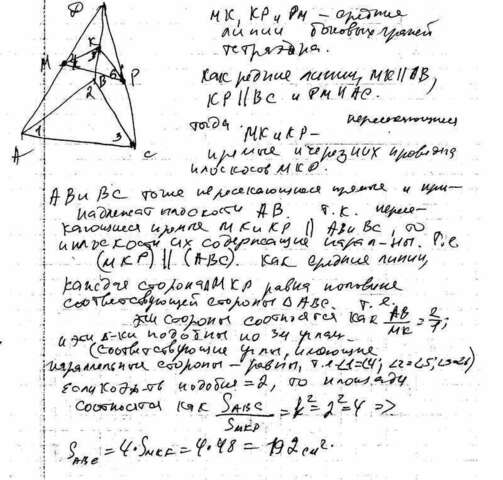 D
K
M
P
B
2
1
3
A
C
MK, KP и PM – средние
линии боковых граней
тетраэдра.
Как средние линии, MK∥AB,
KP∥BC и PM∥AC.
тогда пересекающиеся
MK и KP –
прямые и через них проведена
плоскость MKP.
AB и BC тоже пересекающиеся прямые и при-
надлежат плоскости AB. т.к. пересе-
кающиеся прямые MK и KP ∥ AB и BC, то
и плоскости их содержащие парал-ны. Т.е.
(MKP) ∥ (ABC). Как средние линии,
каждая сторона ΔMKP равна половине
соответствующей стороны ΔABC. т.е.
эти стороны соотносятся как AB/MK = 2/1;
и эти Δ-ки подобны по 3м углам.
(соответствующие углы, имеющие
параллельные стороны – равны, т.е ∠1=∠4; ∠2=∠5; ∠3=∠6)
Если коэф-т подобия = 2, то площади
соотносятся как S_ABC/S_MKP = k² = 2² = 4 =>
S_ABC = 4·S_MKP = 4·48 = 192 см².